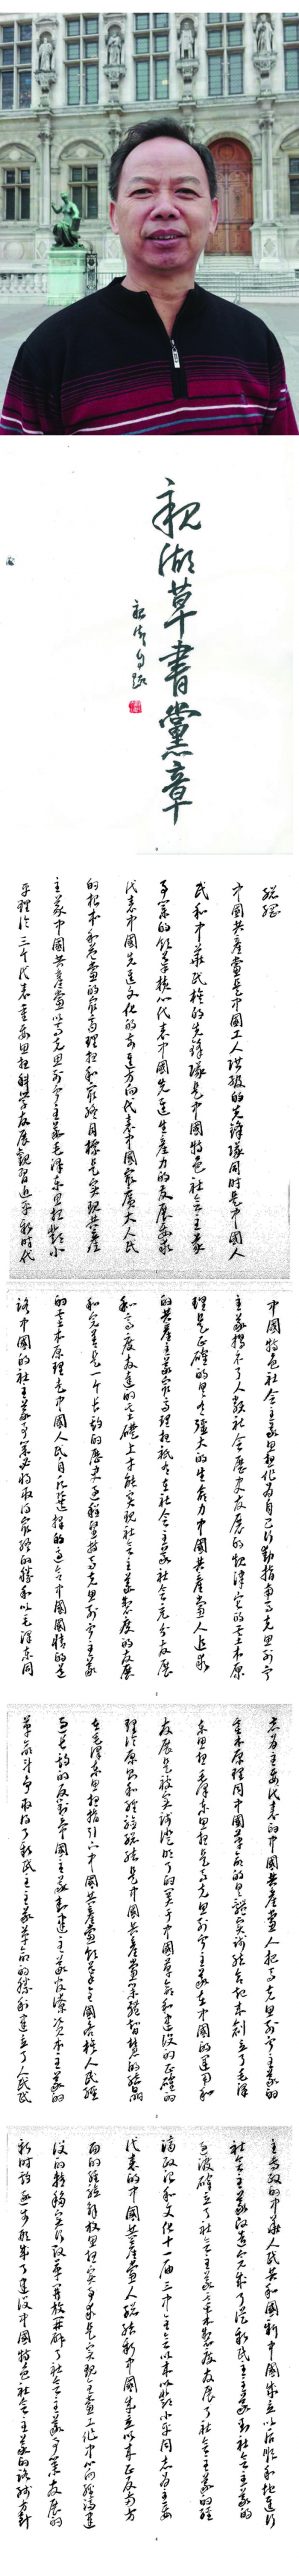 親湖草書黨章
親湖自題
總綱
中國共產黨是中國工人階級的先鋒隊同時是中國人
民和中華民族的先鋒隊是中國特色社會主義
事業的領導核心代表中國先進生產力的發展要求
代表中國先進文化的前進方向代表中國最廣大人民
的根本利益黨的最高理想和最終目標是實現共產
主義中國共產黨以馬克思列寧主義毛澤東思想鄧小
平理論三個代表重要思想科學發展觀習近平新時代
中國特色社會主義思想作為自己行動指南馬克思列寧
主義揭示了人類社會歷史發展的規律它的基本原
理是正確的具有強大的生命力中國共產黨人追求
的共產主義最高理想祇有在社會主義社會充分發展
和高度發達的基礎上才能實現社會主義制度的發展
和完善是一個長期的歷史過程堅持馬克思列寧主義
的基本原理走中國人民自願選擇的適合中國國情的道
路中國的社會主義事業必將取得最終的勝利以毛澤東同
志為主要代表的中國共產黨人把馬克思列寧主義的
基本原理同中國革命的具體實踐結合起來創立了毛澤
東思想毛澤東思想是馬克思列寧主義在中國的運用和
發展是被實踐證明了的關于中國革命和建設的正確的
理論原則和經驗總結是中國共產黨集體智慧的結晶
在毛澤東思想指引下中國共產黨領導全國各族人民經
過長期的反對帝國主義封建主義官僚資本主義的
革命斗爭取得了新民主主義革命的勝利建立了人民民
主專政的中華人民共和國新中國成立以后順利地進行
社會主義改造完成了從新民主主義到社會主義的
過渡確立了社會主義基本制度發展了社會主義的經
濟政治和文化十一屆三中全會以來以鄧小平同志為主要
代表的中國共產黨人總結新中國成立以來正反兩方
面的經驗解放思想實事求是實現全黨工作中心向經濟建
設的轉移實行改革開放開辟了社會主義事業發展的
新時期逐步形成了建設中國特色社會主義的路線方針